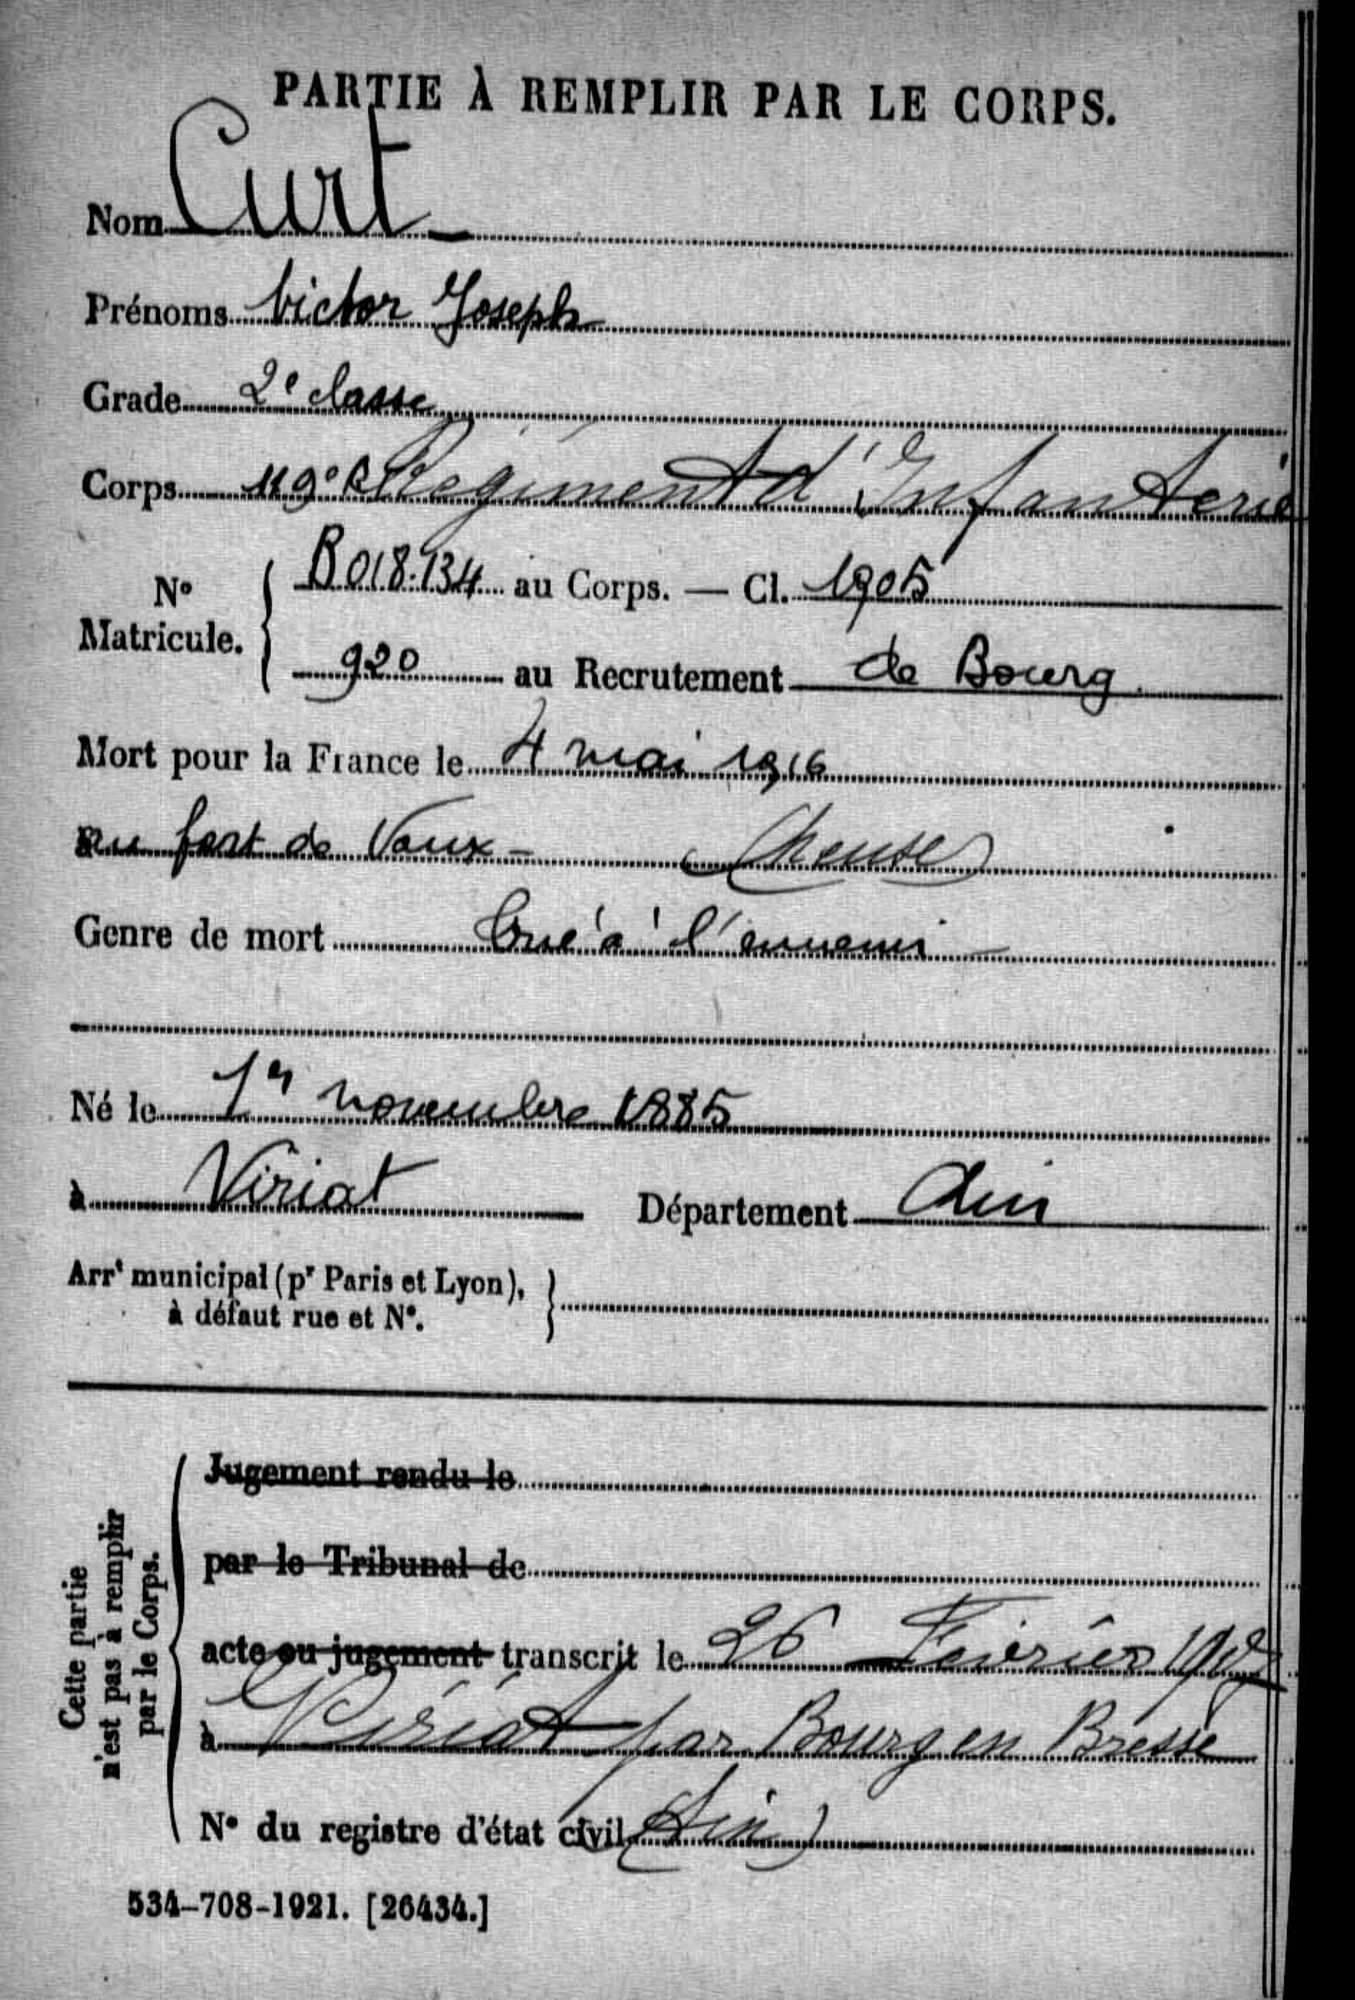 PARTIE À REMPLIR PAR LE CORPS.
Nom Curt
Prénoms Victor Joseph
Grade 2e classe
Corps 119e R Régiment d'Infanterie
No Matricule. B 018.134 au Corps. — Cl. 1905
920 au Recrutement de Bourg
Mort pour la France le 4 mai 1916
au fort de Vaux - (Meuse)
Genre de mort Tué à l'ennemi -
Né le 1er novembre 1885
à Viriat Département Ain
Arrt municipal (pr Paris et Lyon),
à défaut rue et N°.
Cette partie
n'est pas à remplir
par le Corps.
Jugement rendu le
par le Tribunal de
acte ou jugement transcrit le 26 Février 1917
à Viriat par Bourg en Bresse
N° du registre d'état civil (Ain)
534-708-1921. [26434.]